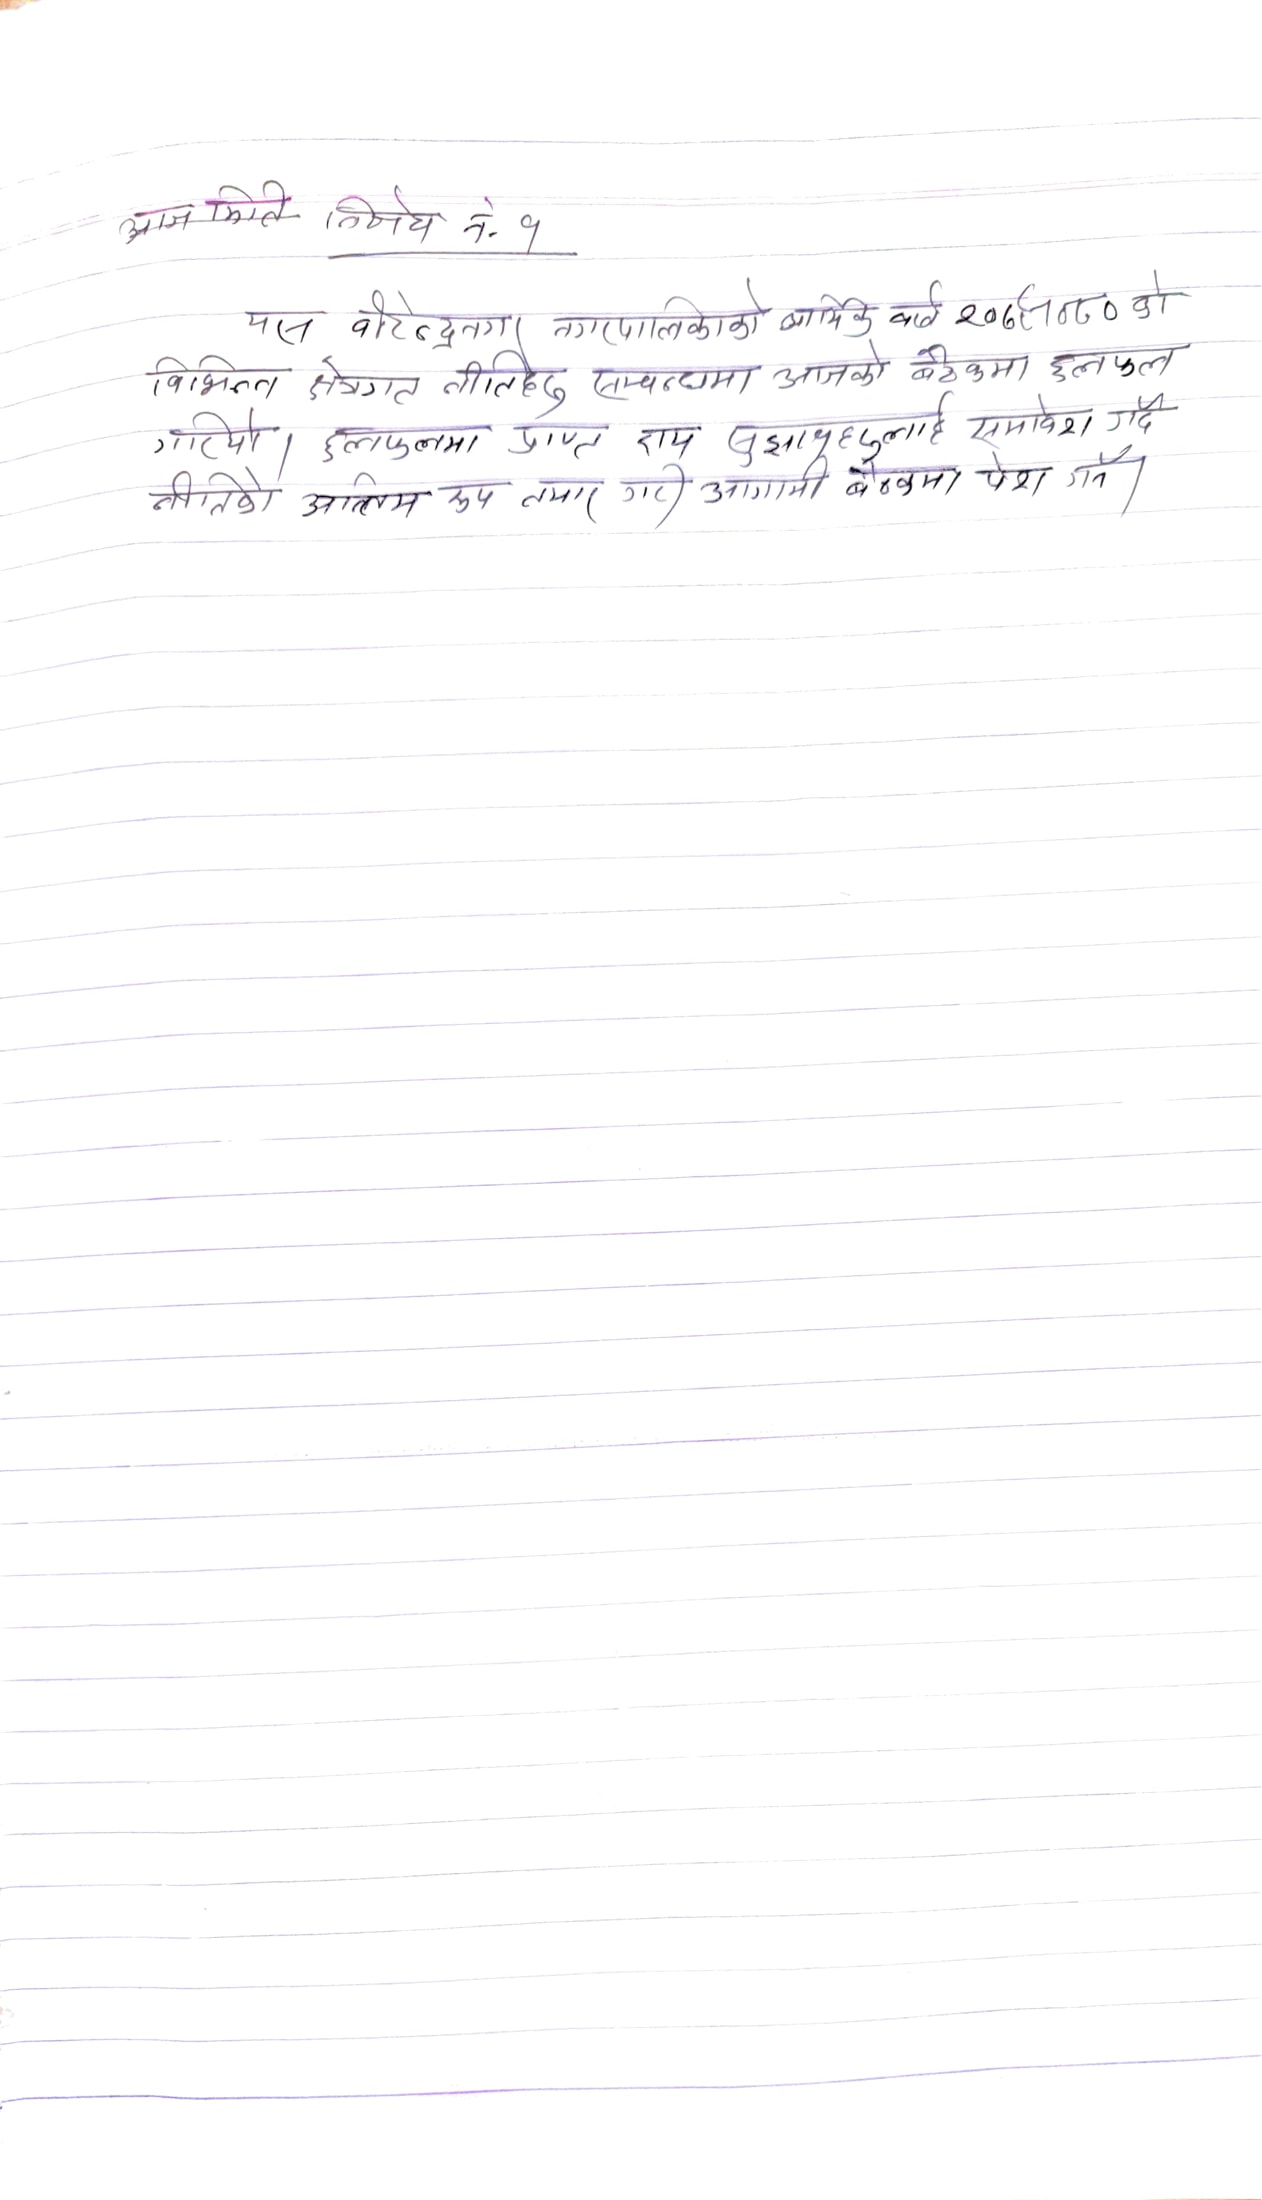 आज मिति निर्णय नं. १
यस वीरेन्द्रनगर नगरपालिकाको आर्थिक वर्ष २०७९।०८० को
विभिन्न क्षेत्रगत नीतिहरु सम्बन्धमा आजको बैठकमा छलफल
गरियो। छलफलमा प्राप्त राय सुझावहरुलाई समावेश गर्दै
नीतिको अन्तिम रुप तयार गरी आगामी बैठकमा पेश गर्ने।